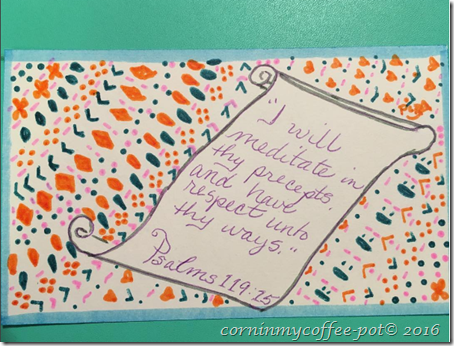 "I will
meditate in
thy precepts,
and have
respect unto
thy ways."
Psalms 119:15
corninmycoffee-pot© 2016